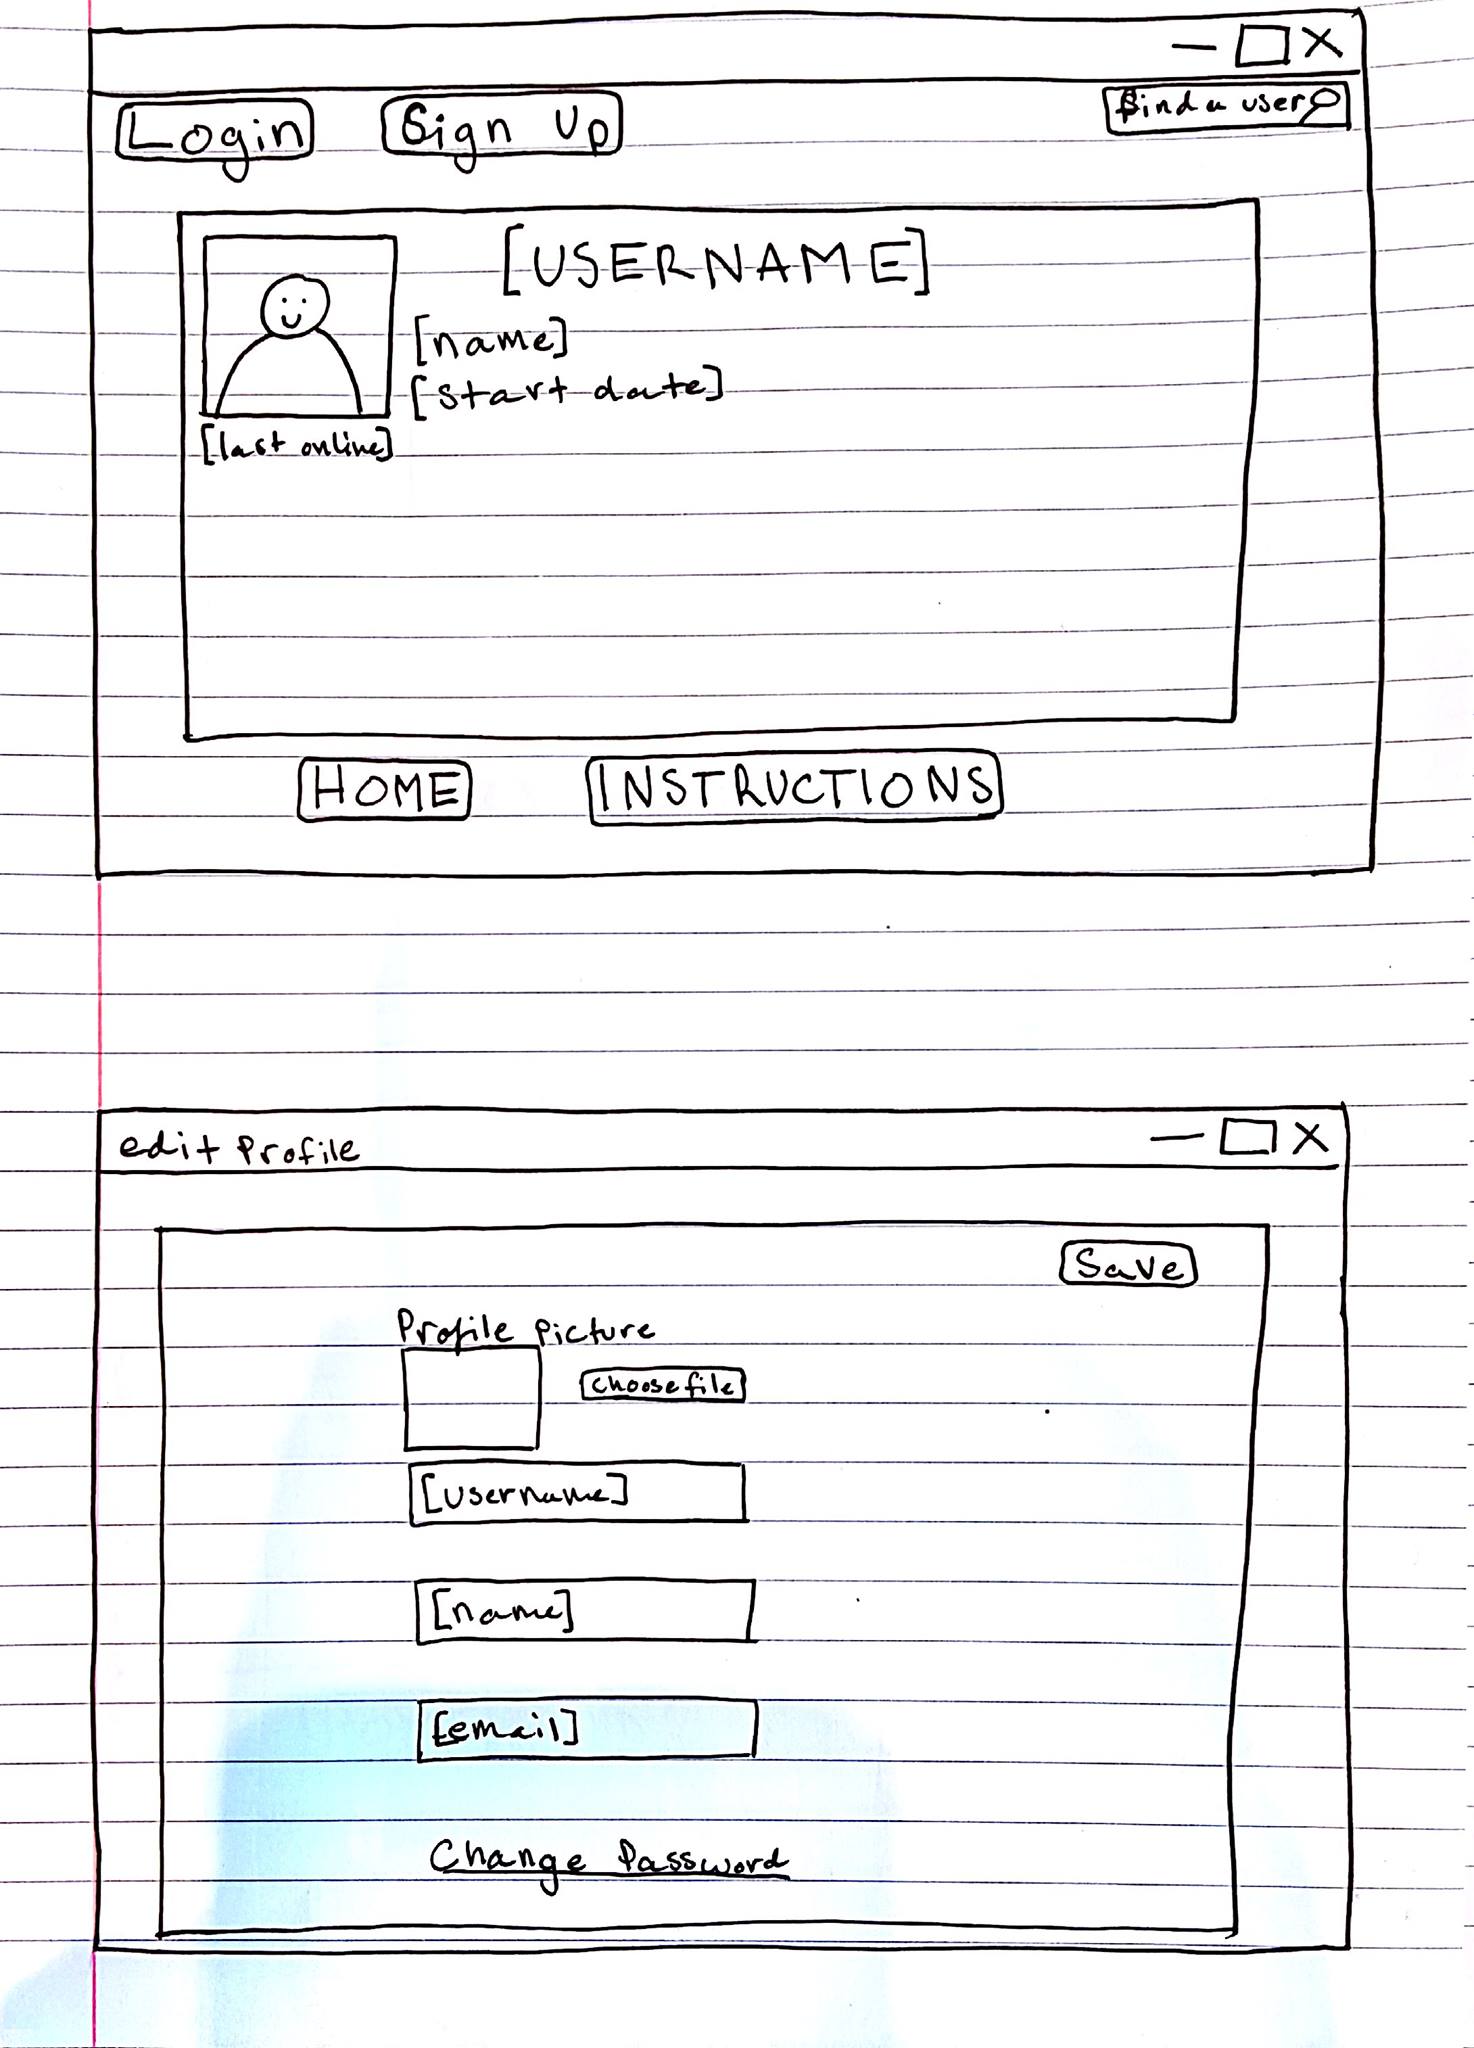 Login Sign Up find a user
[USERNAME]
[name]
[start date]
[last online]
HOME INSTRUCTIONS
edit Profile
Save
Profile Picture
choose file
[username]
[name]
[email]
Change Password